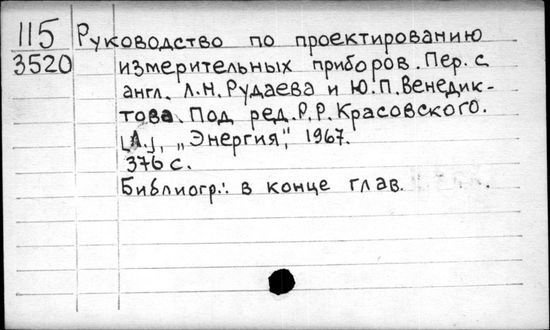 115
3520
Руководство по проектированию
измерительных приборов. Пер. с
англ. Л.Н. Рудаева и Ю.П. Венедик-
това. Под ред. Р.Р. Красовского.
[Л.], „Энергия", 1967.
376 с.
Библиогр.: в конце глав.